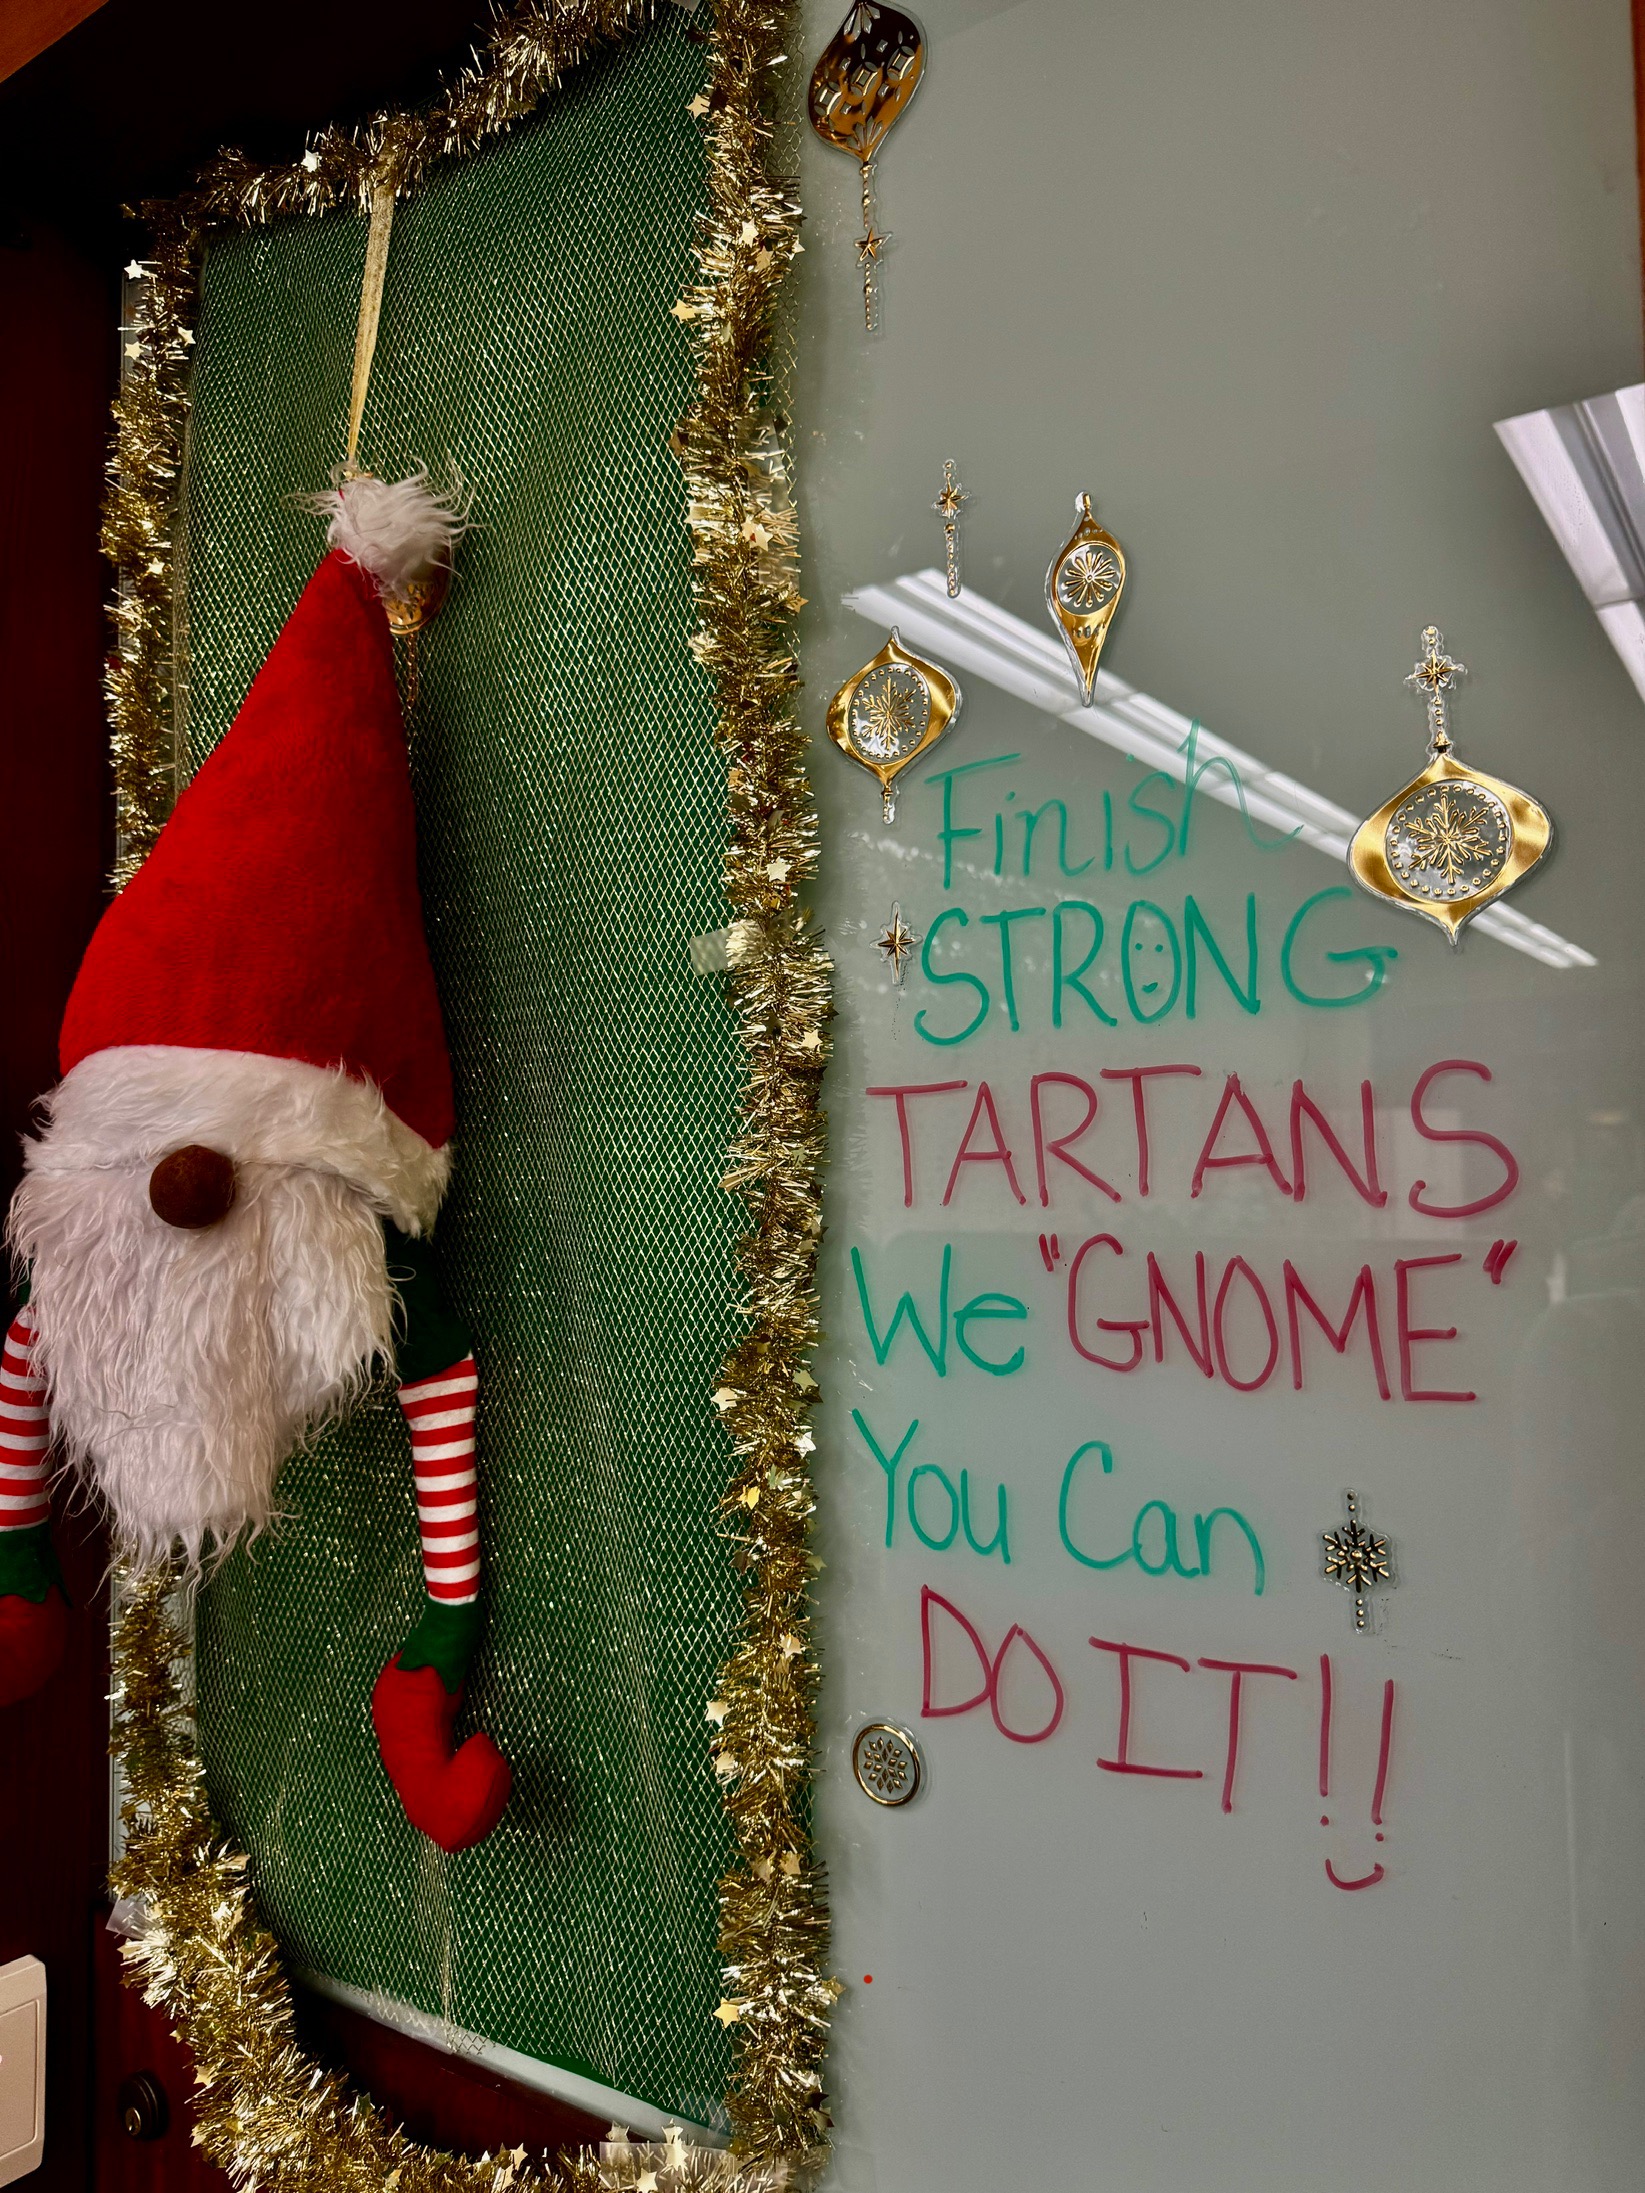 Finish
STRONG
TARTANS
We "GNOME"
You Can
DO IT!!